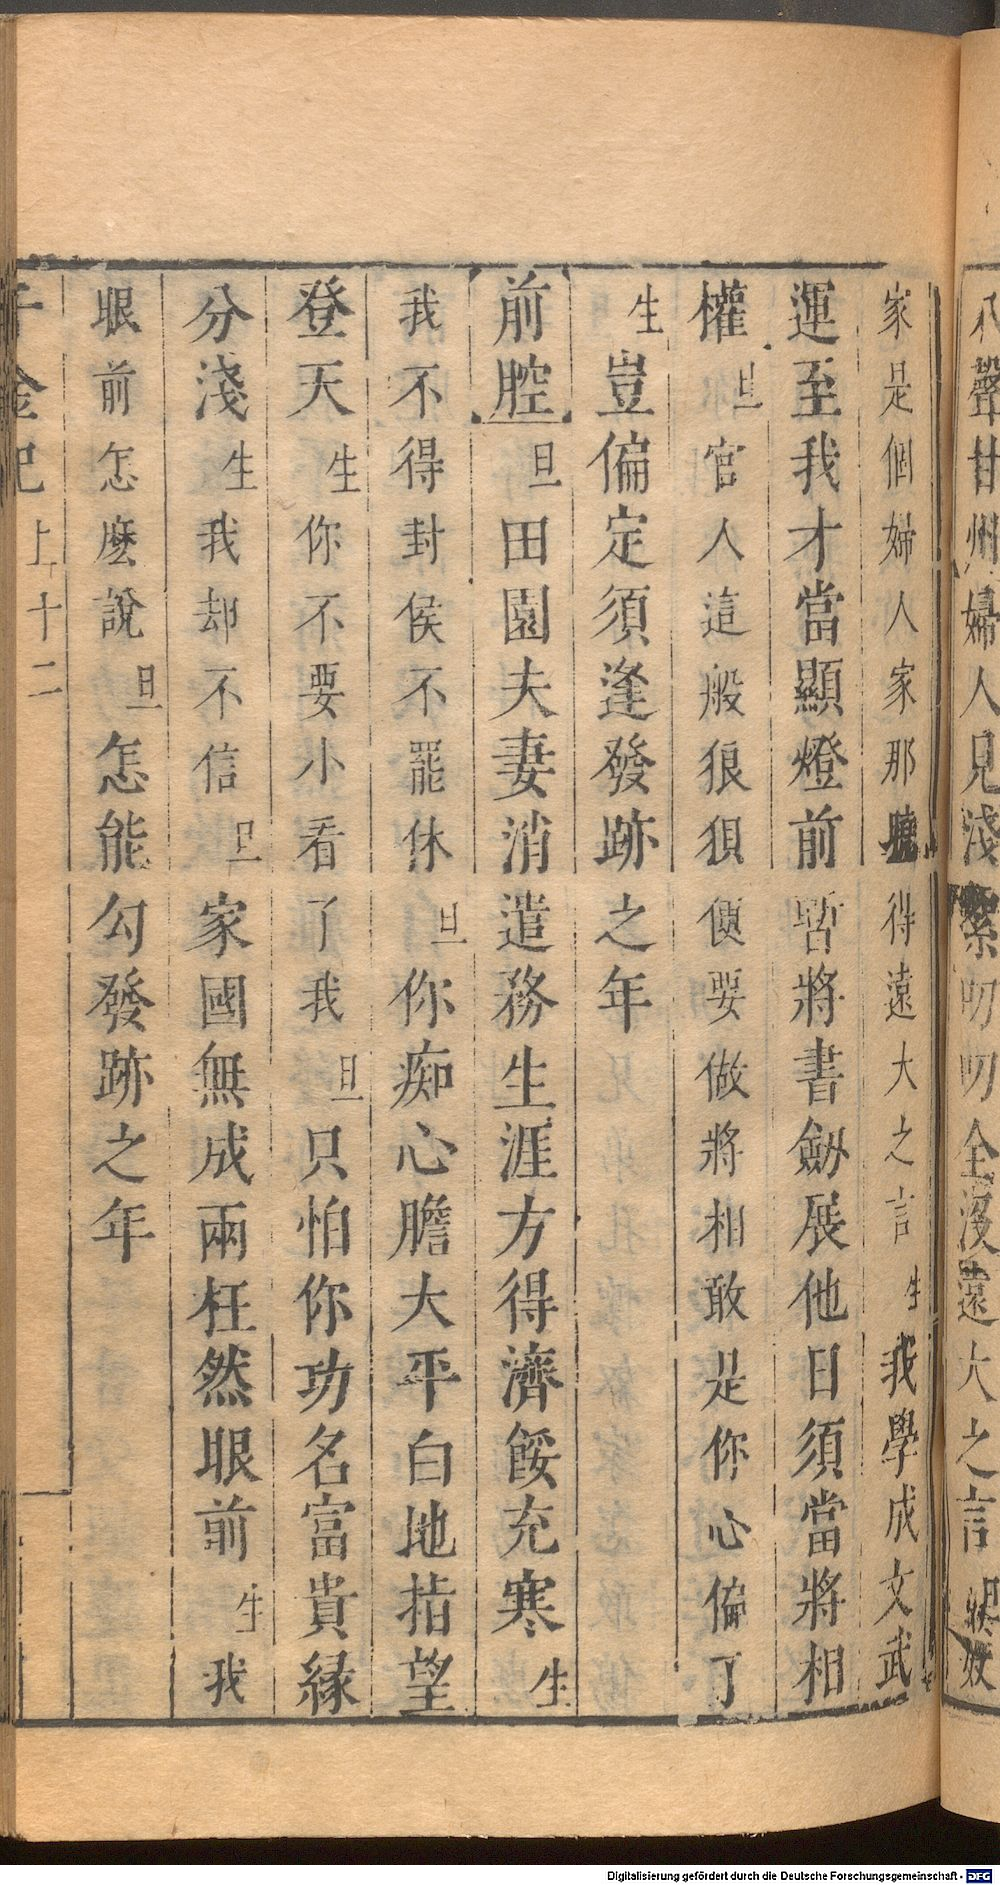 八聲甘州婦人見淺絮叨叨全沒遠大之言旦賤奴
家是個婦人家那曉得遠大之言生我學成文武
運至我才當顯燈前暫將書劒展他日須當將相
權旦官人這般狼狽便要做將相敢是你心偏了
生豈偏定須逢發跡之年
前腔旦田園夫妻消遣務生涯方得濟餒充寒生
我不得封侯不罷休旦你痴心膽大平白地指望
登天生你不要小看了我旦只怕你功名富貴緣
分淺生我却不信旦家國無成兩枉然眼前生我
眼前怎麽說旦怎能勾發跡之年
千金記 上十二
Digitalisierung gefördert durch die Deutsche Forschungsgemeinschaft - DFG